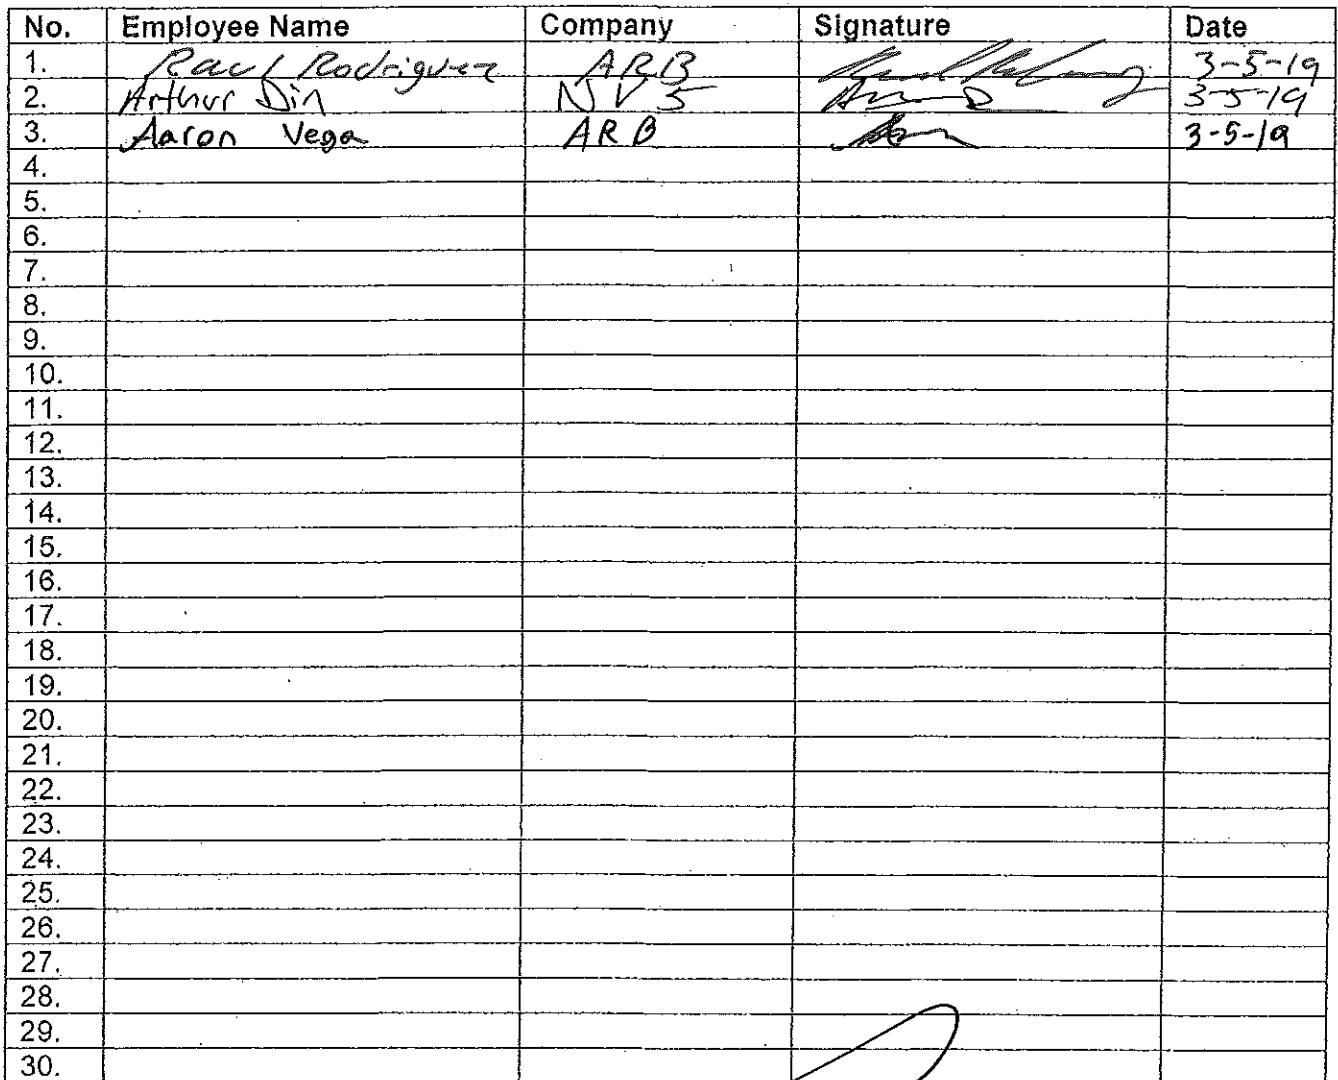 No. Employee Name Company Signature Date
1. Raul Rodriguez ARB 3-5-19
2. Arthur Din NV5 3-5-19
3. Aaron Vega ARB 3-5-19
4.
5.
6.
7.
8.
9.
10.
11.
12.
13.
14.
15.
16.
17.
18.
19.
20.
21.
22.
23.
24.
25.
26.
27.
28.
29.
30.